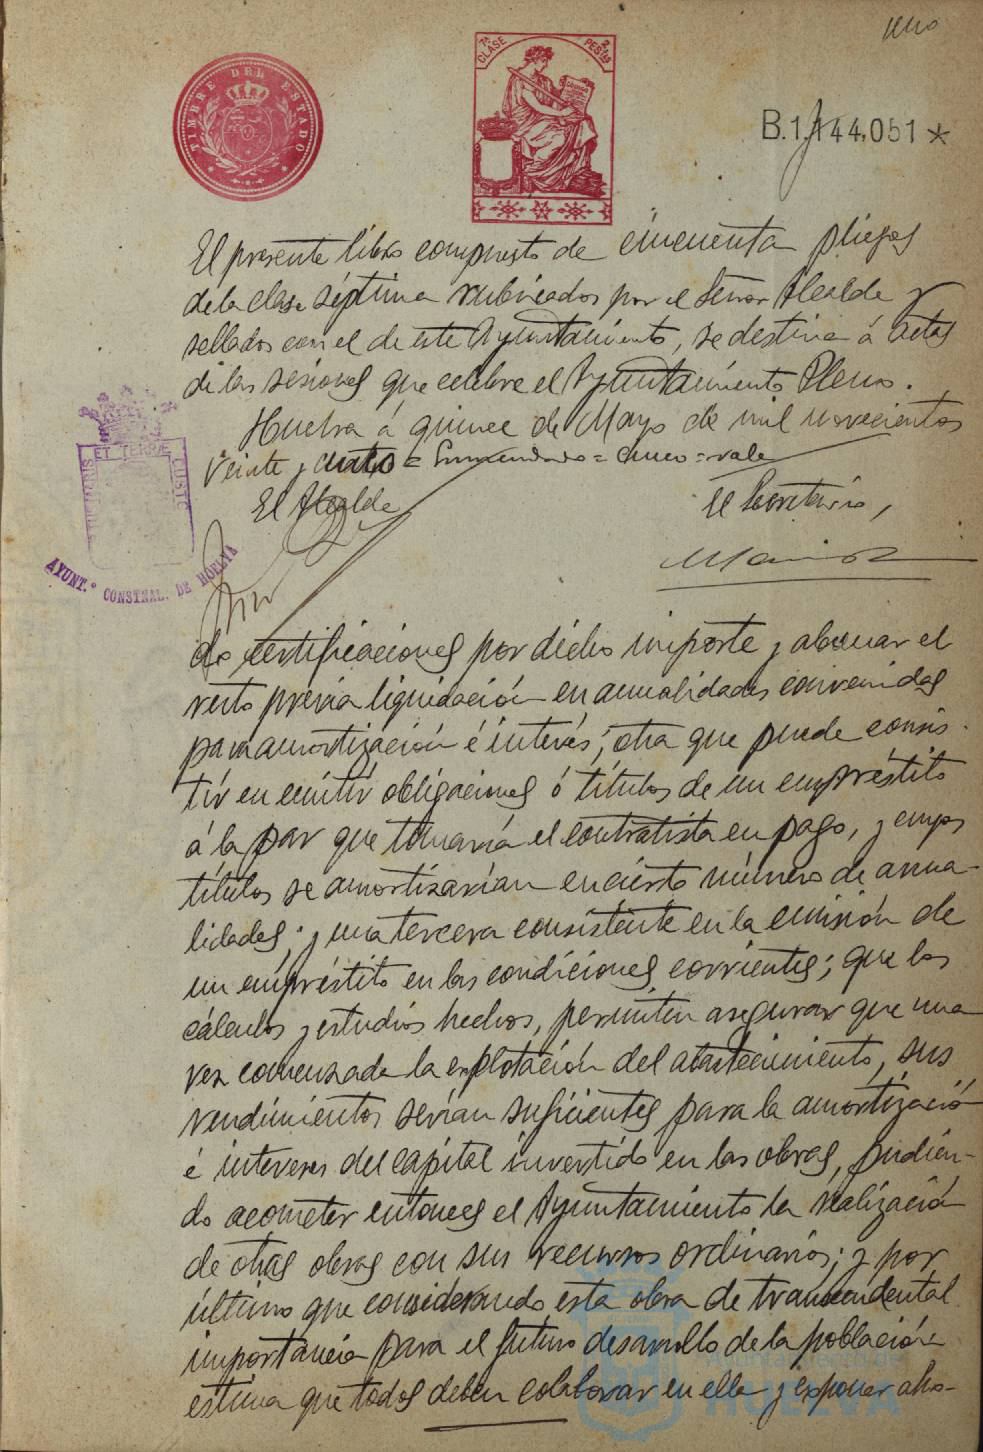 uno
TIMBRE DEL ESTADO
7ª CLASE
2 PESTAS
B.1,144,051 *
El presente libro compuesto de cincuenta pliegos
de la clase séptima rubricados por el Señor Alcalde y
sellados con el de este Ayuntamiento, se destina á actas
de las sesiones que celebre el Ayuntamiento Pleno.
Huelva á quince de Mayo de mil novecientos
veinte y cinco = Enmendado = cinco = vale
El Alcalde
El Secretario,
PORTUS MARIS ET TERRÆ CUSTODIA
AYUNT.º CONSTNAL. DE HUELVA
do certificaciones por dicho importe y abonar el
resto previa liquidación en anualidades convenidas
para amortización é interés; otra que puede consis-
tir en emitir obligaciones ó títulos de un empréstito
á la par que tomaría el contratista en pago, y cuyos
títulos se amortizarían en cierto número de anua-
lidades; y una tercera consistente en la emisión de
un empréstito en las condiciones corrientes; que los
cálculos y estudios hechos, permiten asegurar que una
vez comenzada la explotación del abastecimiento, sus
rendimientos serían suficientes para la amortización
é intereses del capital invertido en las obras, pudien-
do acometer entonces el Ayuntamiento la realización
de otras obras con sus recursos ordinarios; y por
último que considerando esta obra de trascendental
importancia para el futuro desarrollo de la población
estima que todos deben colaborar en ella y exponer aho-
Ayuntamiento de
HUELVA